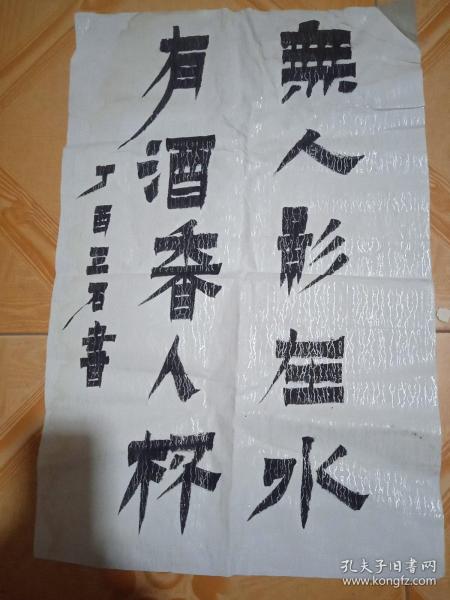 無人影在水
有酒香人杯
丁酉石書
孔夫子旧书网
www.kongfz.com